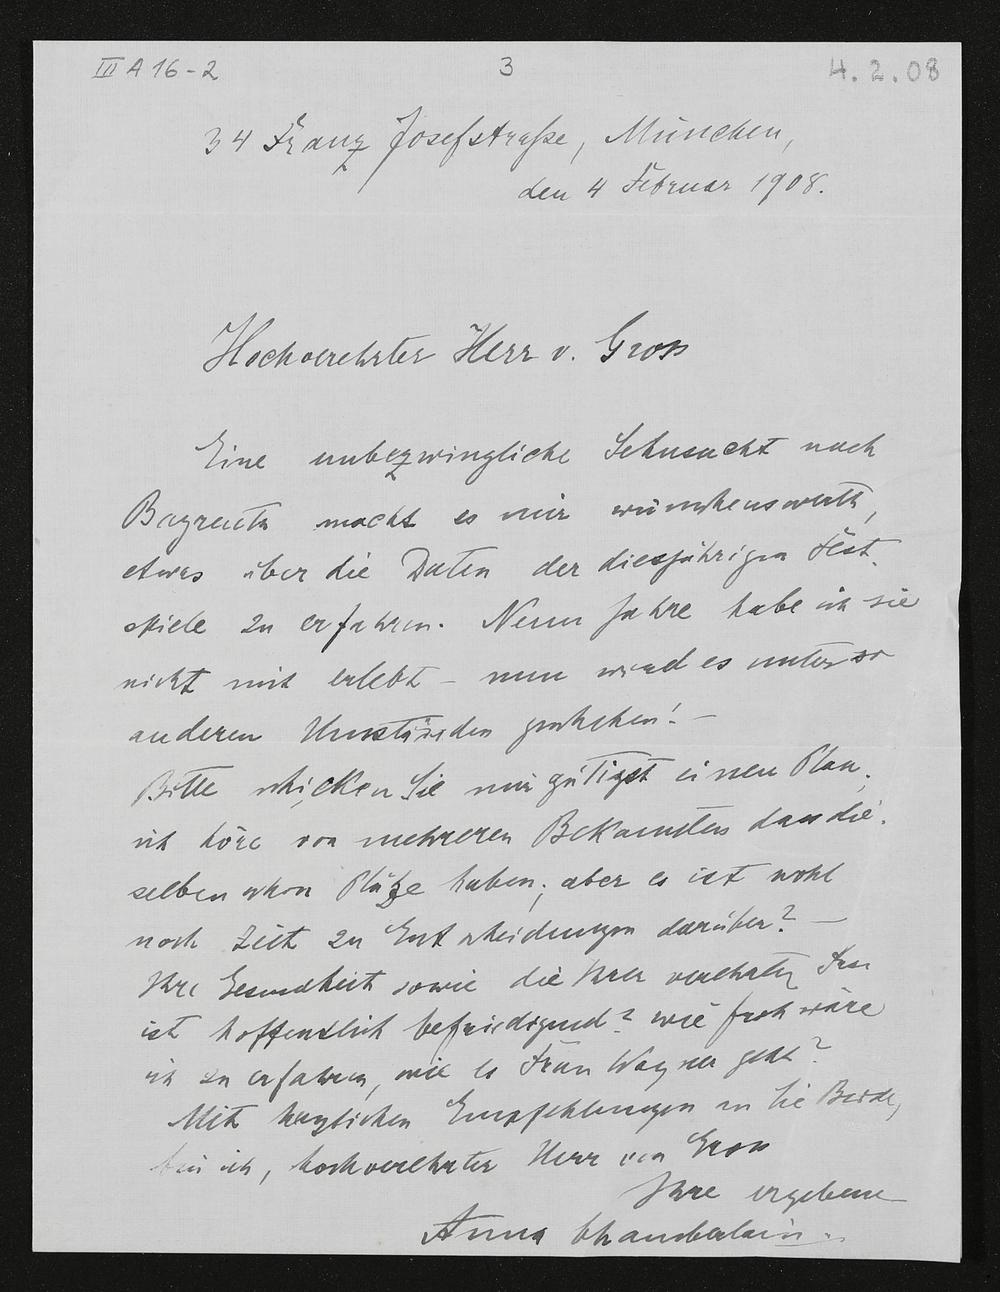 III A 16-2
3
4.2.08
34 Franz Josefstraße, München,
den 4 Februar 1908.
Hochverehrter Herr v. Gross
Eine unbezwingliche Sehnsucht nach
Bayreuth macht es mir wünschenswerth,
etwas über die Daten der diesjährigen Fest-
spiele zu erfahren. Neun Jahre habe ich sie
nicht mit erlebt – nun wird es unter so
anderen Umständen geschehen! –
Bitte schicken Sie mir gütigst einen Plan,
ich höre von mehreren Bekannten dass die-
selben schon Plätze haben; aber es ist wohl
noch Zeit zu Entscheidungen darüber? –
Ihre Gesundheit sowie die Ihrer verehrten Frau
ist hoffentlich befriedigend? wie froh wäre
ich zu erfahren, wie es Frau Wagner geht?
Mit herzlichen Empfehlungen an Sie Beide,
bin ich, hochverehrter Herr von Gross
Ihre ergebene
Anna Chamberlain.